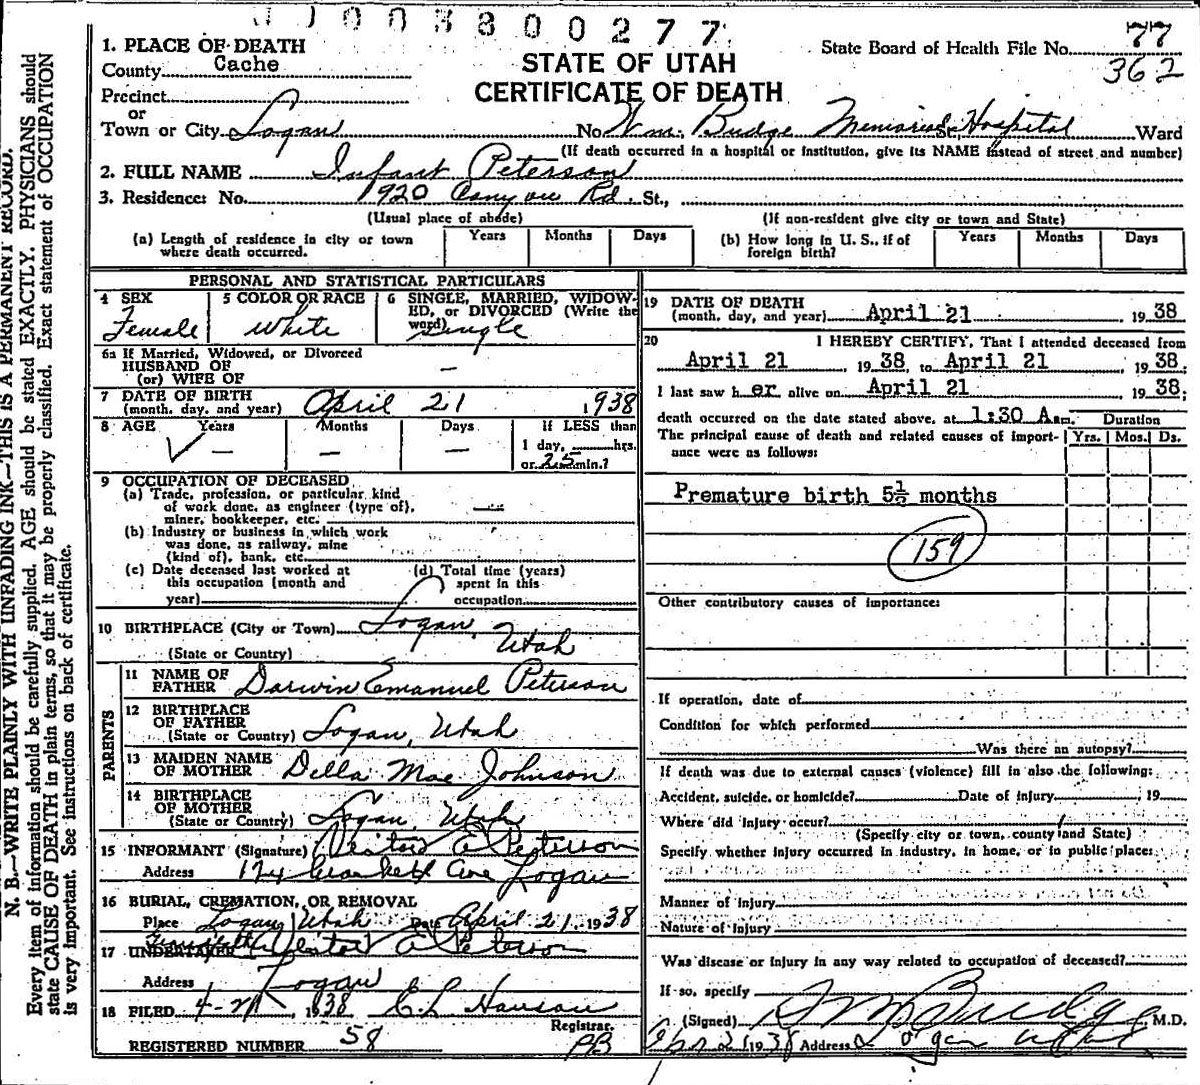 3 8 0 0 2 7 7
1. PLACE OF DEATH
County Cache
Precinct
or
Town or City Logan
STATE OF UTAH
CERTIFICATE OF DEATH
State Board of Health File No. 77
362
No. Wm. Budge Memorial St. Hospital Ward
(If death occurred in a hospital or institution, give its NAME instead of street and number)
2. FULL NAME Infant Peterson
3. Residence: No. 920 Canyon Rd. St.,
(Usual place of abode) (If non-resident give city or town and State)
(a) Length of residence in city or town where death occurred. Years Months Days
(b) How long in U. S., if of foreign birth? Years Months Days
PERSONAL AND STATISTICAL PARTICULARS
4 SEX Female
5 COLOR OR RACE White
6 SINGLE, MARRIED, WIDOWED, or DIVORCED (Write the word) single
6a If Married, Widowed, or Divorced
HUSBAND OF
(or) WIFE OF —
7 DATE OF BIRTH
(month, day, and year) April 21 1938
8 AGE Years Months Days If LESS than
— — — 1 day, hrs.
or 25 min.?
9 OCCUPATION OF DECEASED
(a) Trade, profession, or particular kind
of work done, as engineer (type of),
miner, bookkeeper, etc. —
(b) Industry or business in which work
was done, as railway, mine
(kind of), bank, etc.
(c) Date deceased last worked at
this occupation (month and
year)
(d) Total time (years)
spent in this
occupation
10 BIRTHPLACE (City or Town) Logan,
(State or Country) Utah
PARENTS
11 NAME OF
FATHER Darwin Emanuel Peterson
12 BIRTHPLACE
OF FATHER
(State or Country) Logan, Utah
13 MAIDEN NAME
OF MOTHER Della Mae Johnson
14 BIRTHPLACE
OF MOTHER
(State or Country) Logan, Utah
15 INFORMANT (Signature) E Peterson
Address Ave Logan
16 BURIAL, CREMATION, OR REMOVAL
Place Logan Utah Date April 21, 1938
17 UNDERTAKER E Peterson
Address Logan
18 FILED 4-21, 1938 C L Hansen
Registrar.
REGISTERED NUMBER 58 PB
19 DATE OF DEATH
(month, day, and year) April 21 1938
20 I HEREBY CERTIFY, That I attended deceased from
April 21 1938 to April 21 1938.
I last saw her alive on April 21 1938;
death occurred on the date stated above, at 1:30 A.m. Duration
The principal cause of death and related causes of importance were as follows: Yrs. Mos. Ds.
Premature birth 5½ months
159
Other contributory causes of importance:
If operation, date of
Condition for which performed
Was there an autopsy?
If death was due to external causes (violence) fill in also the following:
Accident, suicide, or homicide? Date of injury 19
Where did injury occur?
(Specify city or town, county and State)
Specify whether injury occurred in industry, in home, or in public place:
Manner of injury
Nature of injury
Was disease or injury in any way related to occupation of deceased?
If so, specify
(Signed) Budge M.D.
Apr 21 1938 Address Logan Utah
N. B.—WRITE PLAINLY WITH UNFADING INK—THIS IS A PERMANENT RECORD.
Every item of information should be carefully supplied. AGE should be stated EXACTLY. PHYSICIANS should
state CAUSE OF DEATH in plain terms, so that it may be properly classified. Exact statement of OCCUPATION
is very important. See instructions on back of certificate.